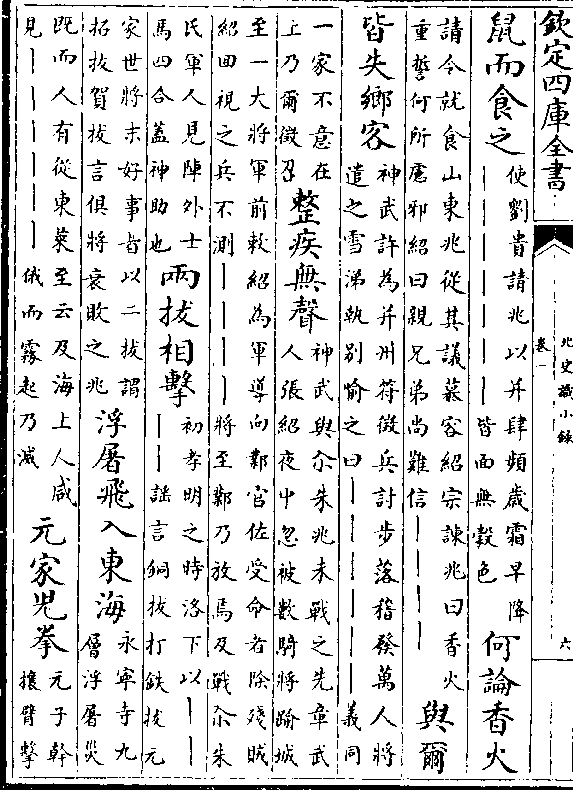 欽定四庫全書
北史識小錄
卷一
六
鼠而食之
使劉貴請兆以并肆頻歲霜早降
————皆面無穀色
何論香火
請令就食山東兆從其議慕容紹宗諫兆曰香火
重誓何所慮邪紹曰親兄弟尚難信————
與爾
皆失鄉客
神武許為并州符徵兵討步落稽發萬人將
遣之雪涕執別喻之曰——————義同
一家不意在
上乃爾徵召
整疾無聲
神武與尒朱兆未戰之先章武
人張紹夜中忽被數騎將踰城
至一大將軍前敕紹為軍導向鄴官佐受命者除殘賊
紹回視之兵不測————將至鄴乃放焉及戰尒朱
氏軍人見陣外士
馬四合蓋神助也
兩拔相擊
初孝明之時洛下以——
——謠言銅拔打鐵拔元
家世將末好事者以二拔謂
拓拔賀拔言俱將衰敗之兆
浮屠飛入東海
永寧寺九
層浮屠災
既而人有從東萊至云及海上人咸
見——————俄而霧起乃滅
元家兒拳
元子幹
攘臂擊